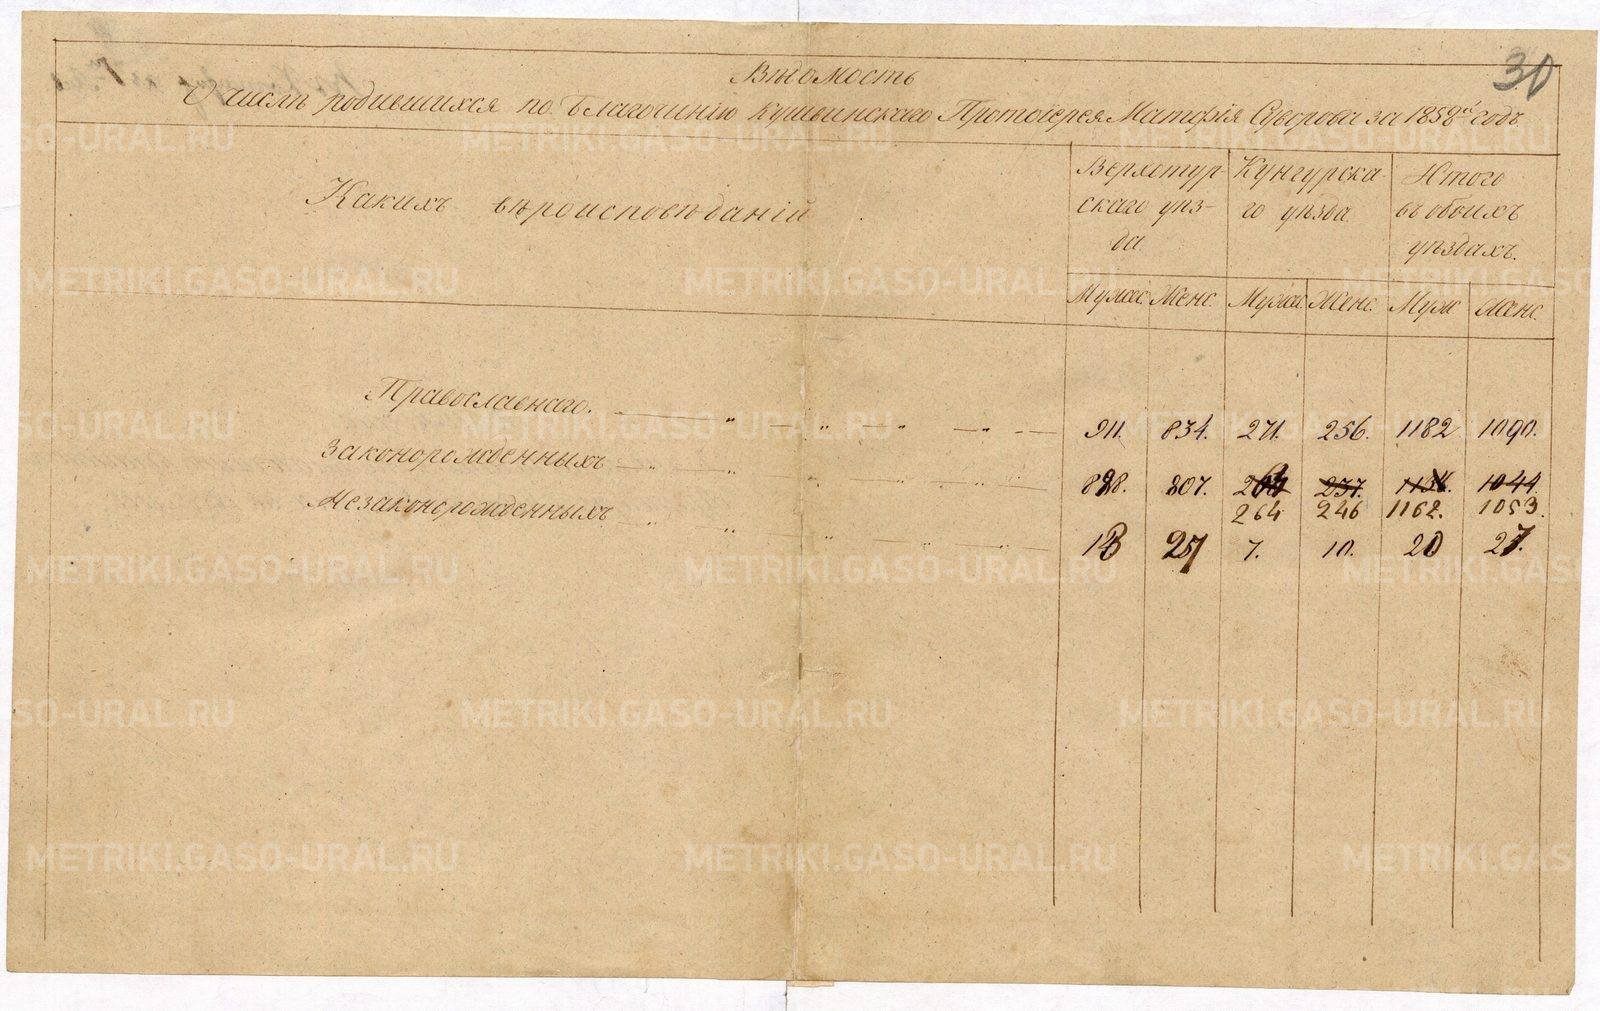 30
Вѣдомость
О числѣ родившихся по Благочинію Кушвинскаго Протоіерея Матфія Суворова за 1858й годъ.
Какихъ вѣроисповѣданій
Верхотур-
скаго уѣз-
да
Кунгурска
го уѣзда
Итого
въ обоихъ
уѣздахъ.
Мужс. Женс. Мужс. Женс. Муж Женс.
Православнаго. 911. 834. 271. 256. 1182 1090.
Законорожденныхъ 898. 807. 237. 1044
264 246 1162. 1053.
Незаконорожденныхъ 13 27 7. 10. 20 27.
METRIKI.GASO-URAL.RU